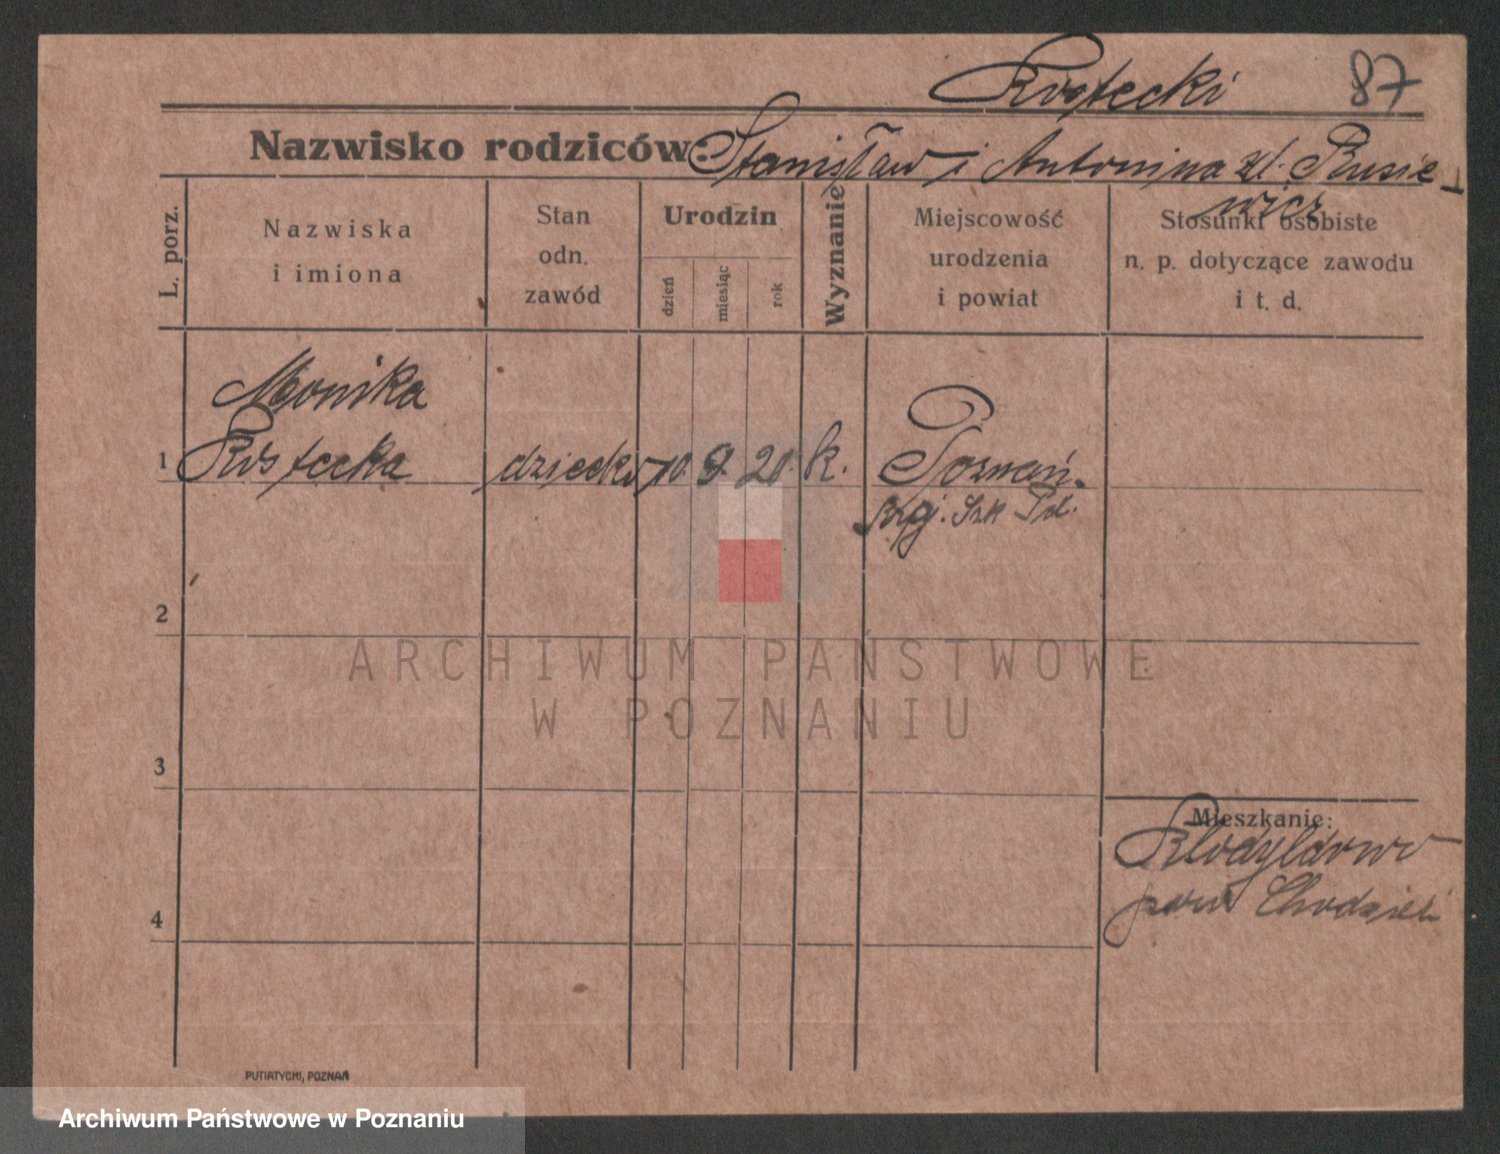 Rostecki 87
Nazwisko rodziców: Stanisław i Antonina zd. Rusie-
wicz
L. porz.
Nazwiska
i imiona
Stan
odn.
zawód
Urodzin
dzień
miesiąc
rok
Wyznanie
Miejscowość
urodzenia
i powiat
Stosunki osobiste
n. p. dotyczące zawodu
i t. d.
Monika
1 Rostecka dziecko 10. 9. 20. k. Poznań.
Szk
2
ARCHIWUM PAŃSTWOWE
W POZNANIU
3
Mieszkanie:
pow Chodzież
4
PUTIATYCKI, POZNAŃ
Archiwum Państwowe w Poznaniu